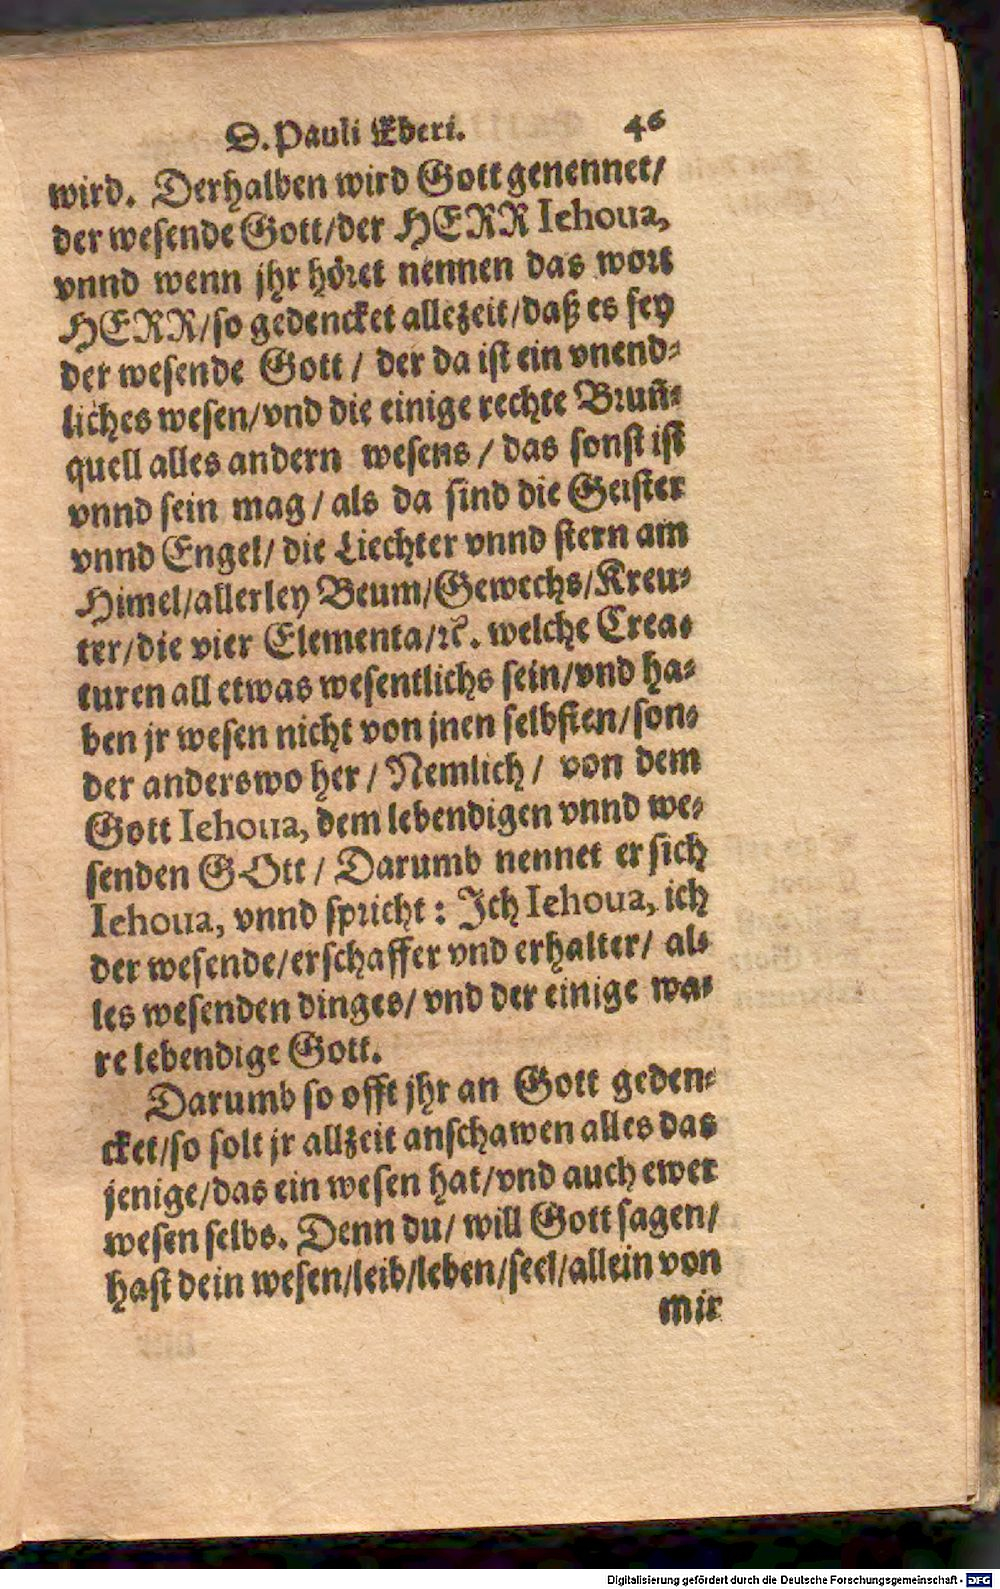 D. Pauli Eberi. 46
wird. Derhalben wird Gott genennet/
der wesende Gott/der HERR Iehoua,
vnnd wenn jhr höret nennen das wort
HERR/so gedencket allezeit/daß es sey
der wesende Gott / der da ist ein vnend-
liches wesen/vnd die einige rechte Brun̄-
quell alles andern wesens / das sonst ist
vnnd sein mag / als da sind die Geister
vnnd Engel/ die Liechter vnnd stern am
Himel/allerley Beum/Gewechs/Kreu-
ter/die vier Elementa/ꝛc. welche Crea-
turen all etwas wesentlichs sein/vnd ha-
ben jr wesen nicht von jnen selbsten/son-
der anderswo her / Nemlich / von dem
Gott Iehoua, dem lebendigen vnnd we-
senden GOtt / Darumb nennet er sich
Iehoua, vnnd spricht: Ich Iehoua, ich
der wesende/erschaffer vnd erhalter/ al-
les wesenden dinges/ vnd der einige wa-
re lebendige Gott.
Darumb so offt jhr an Gott geden-
cket/so solt jr allzeit anschawen alles das
jenige/das ein wesen hat/vnd auch ewer
wesen selbs. Denn du/ will Gott sagen/
hast dein wesen/leib/leben/seel/allein von
mir
Digitalisierung gefördert durch die Deutsche Forschungsgemeinschaft - DFG